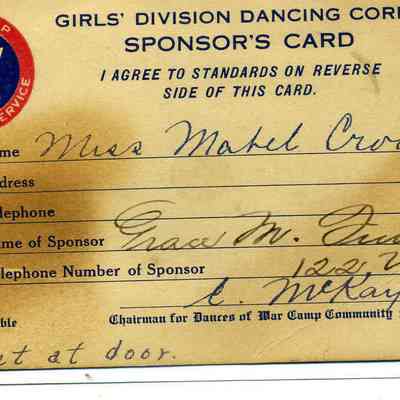 GIRLS' DIVISION DANCING COR
SPONSOR'S CARD
I AGREE TO STANDARDS ON REVERSE
SIDE OF THIS CARD.
P
ERVICE
me Miss Mabel Cro
dress
lephone
me of Sponsor Grace M.
lephone Number of Sponsor 122
C. McKay
ble Chairman for Dances of War Camp Community
t at door.